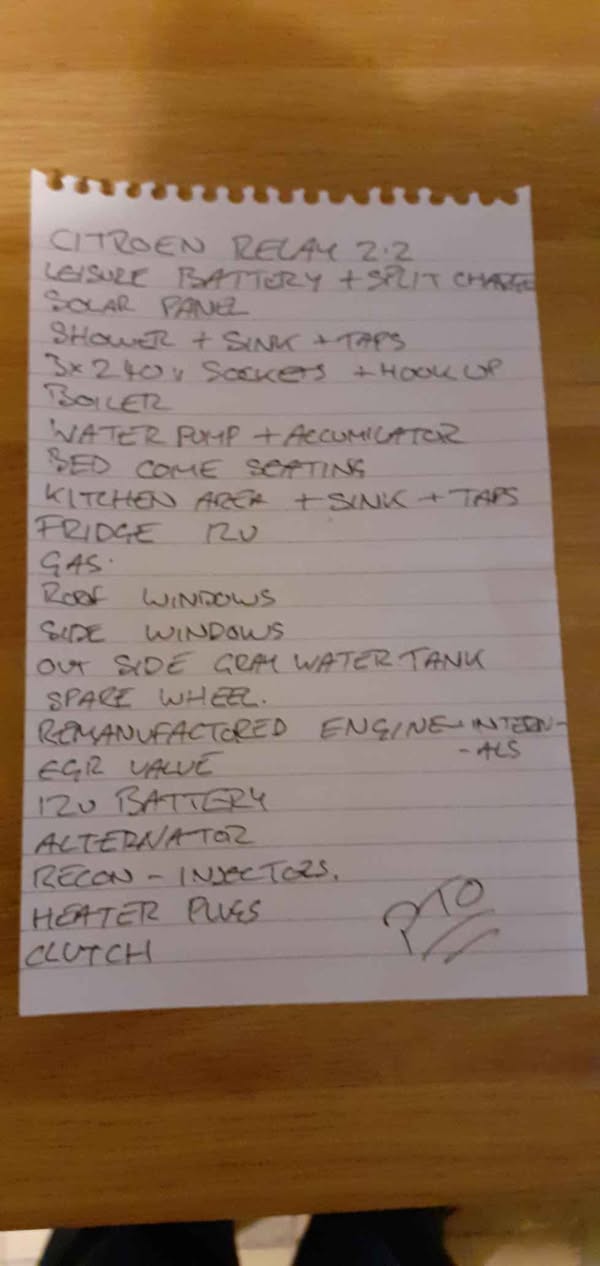 CITROEN RELAY 2.2
LEISURE BATTERY + SPLIT CHARGE
SOLAR PANEL
SHOWER + SINK + TAPS
3x 240v SOCKETS + HOOK UP
BOILER
WATER PUMP + ACCUMILATOR
BED COME SEATING
KITCHEN AREA + SINK + TAPS
FRIDGE 12V
GAS.
ROOF WINDOWS
SIDE WINDOWS
OUT SIDE GRAY WATER TANK
SPARE WHEEL.
REMANUFACTORED ENGINE-INTERN-
-ALS
EGR VALVE
12V BATTERY
ALTERNATOR
RECON - INJECTORS.
HEATER PLUGS
CLUTCH
PTO